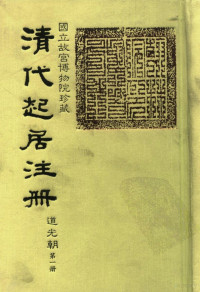 國立故宮博物院珍藏
清代起居注冊
道光朝
第一冊